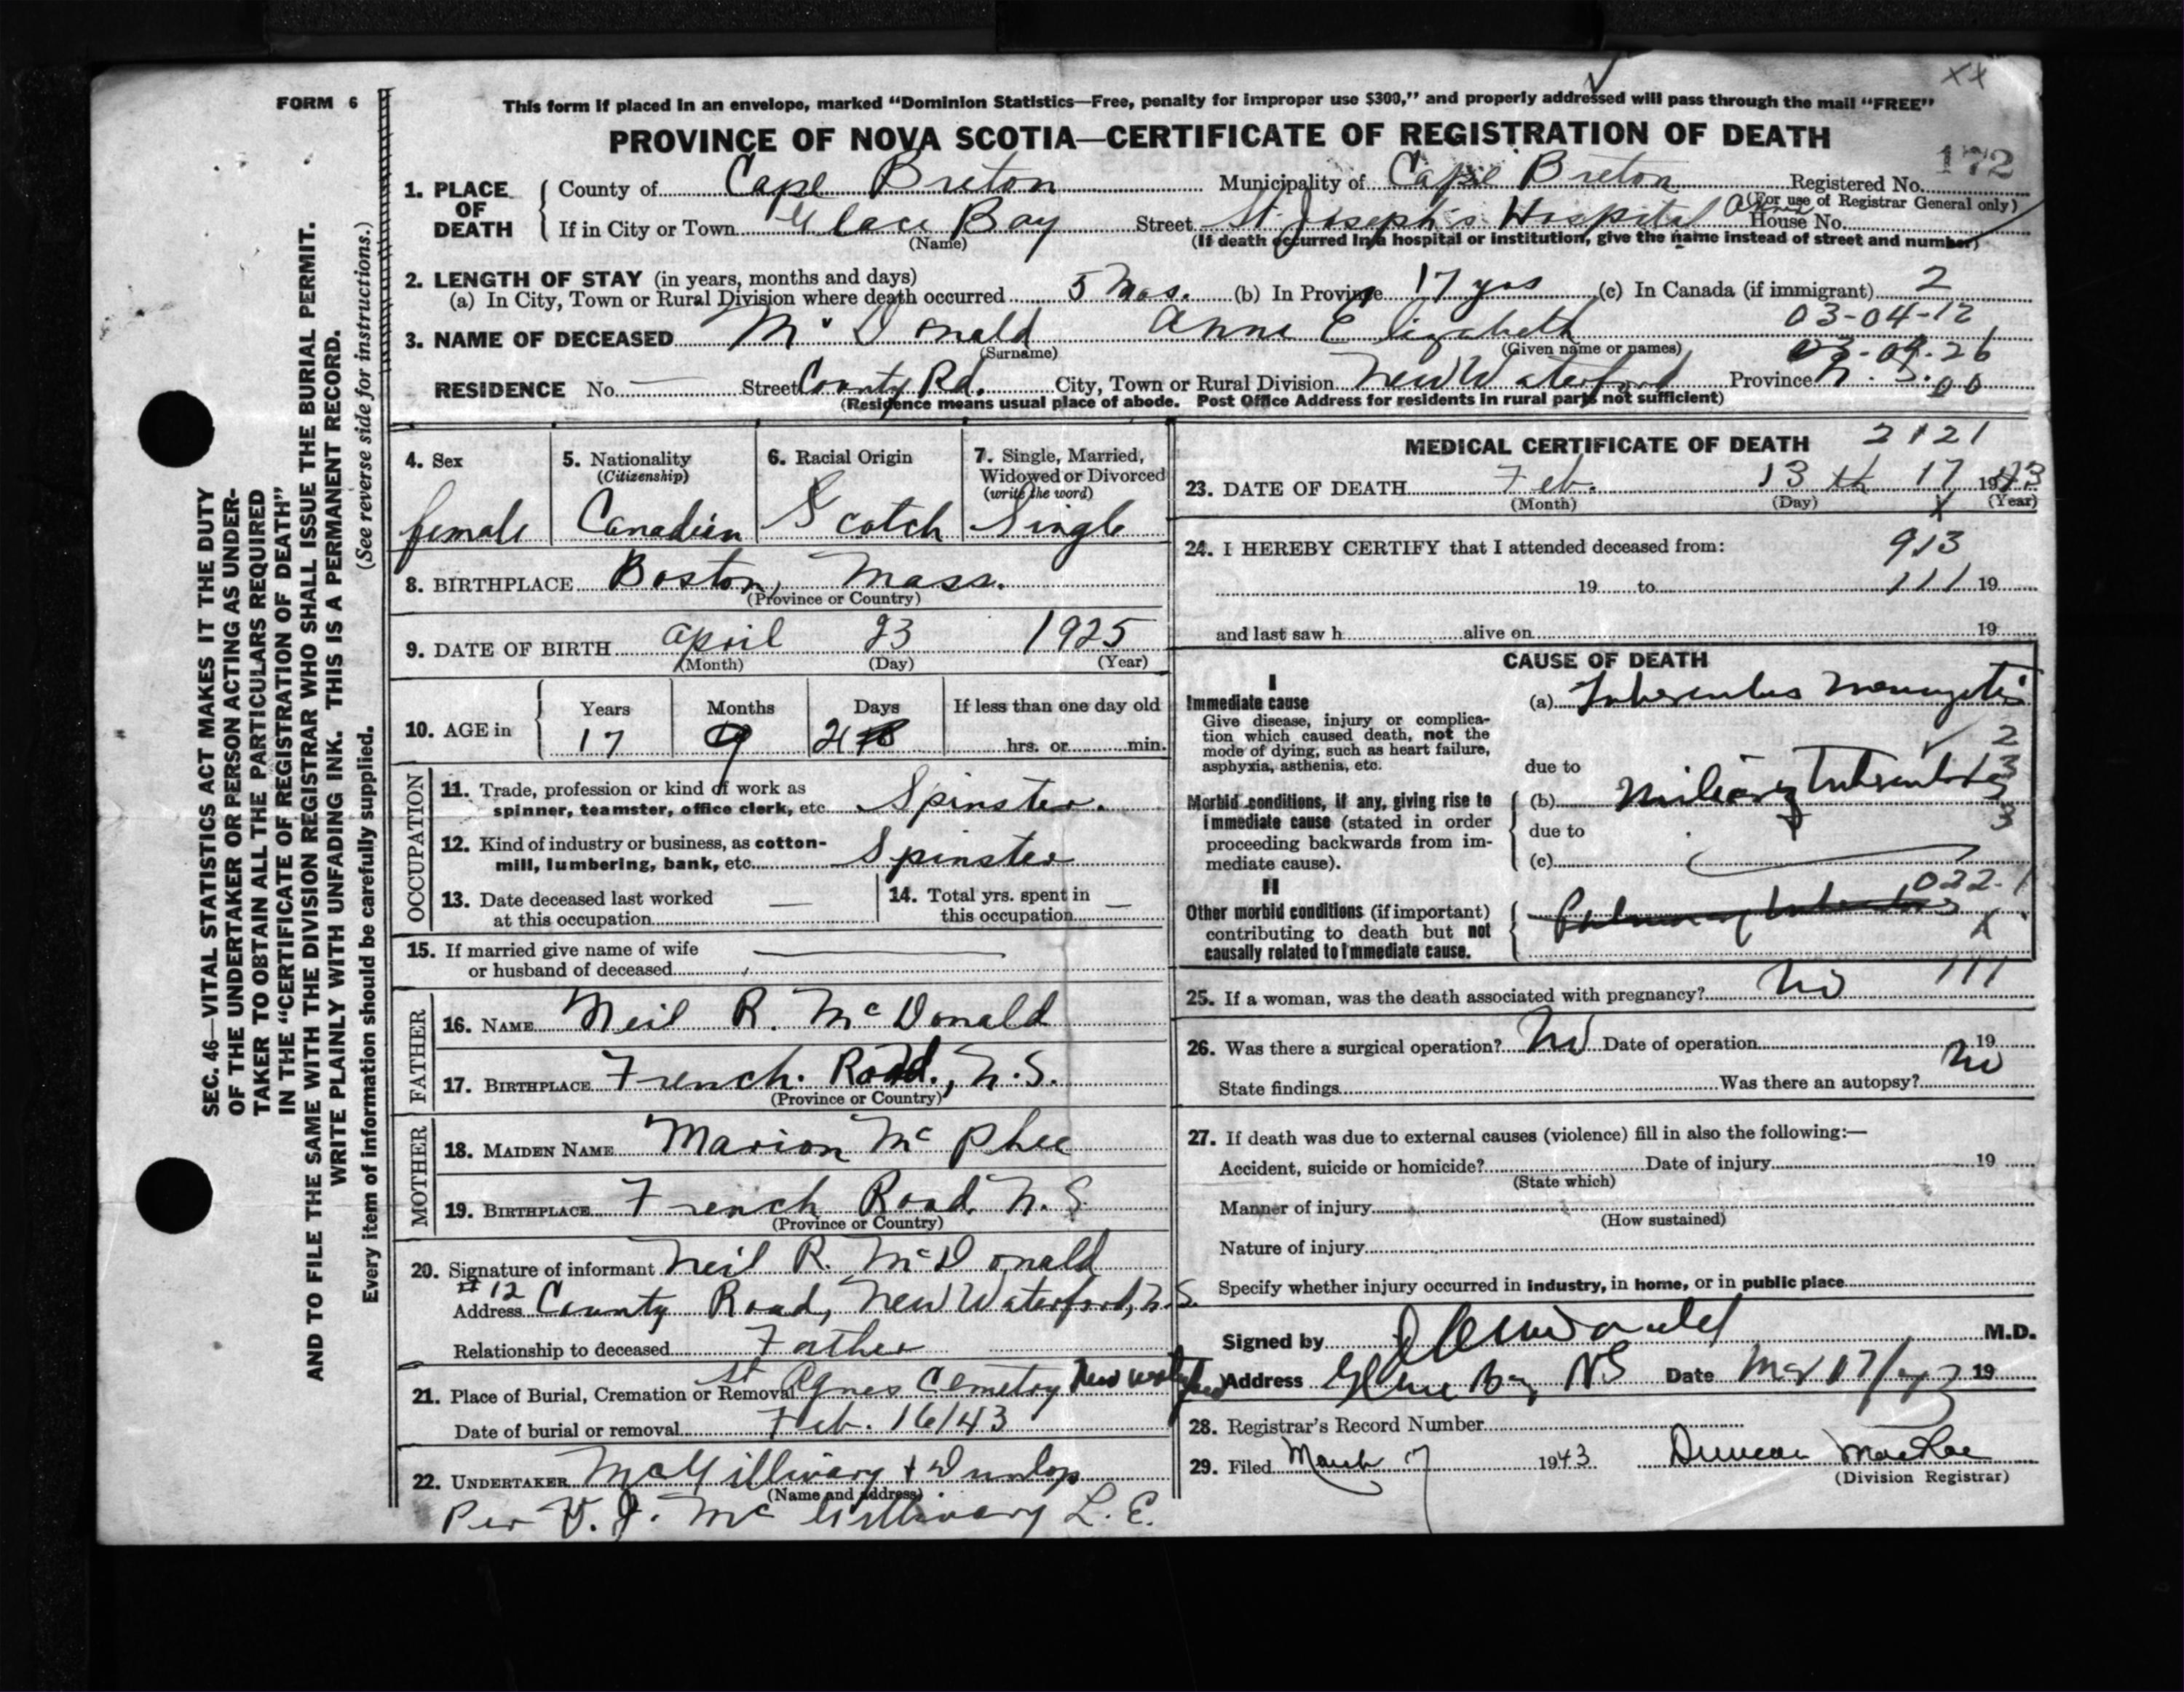 XX
FORM 6
This form if placed in an envelope, marked "Dominion Statistics—Free, penalty for improper use $300," and properly addressed will pass through the mail "FREE"
PROVINCE OF NOVA SCOTIA—CERTIFICATE OF REGISTRATION OF DEATH
172
1. PLACE OF DEATH County of Cape Breton Municipality of Cape Breton Registered No.
(For use of Registrar General only)
If in City or Town Glace Bay Street St. Joseph's Hospital House No.
(Name) (If death occurred in a hospital or institution, give the name instead of street and number)
2. LENGTH OF STAY (in years, months and days)
(a) In City, Town or Rural Division where death occurred 5 Mos. (b) In Province 17 yrs (c) In Canada (if immigrant) 2
03-04-12
3. NAME OF DECEASED McDonald Anne Elizabeth
(Surname) (Given name or names)
03-04-26
RESIDENCE No. — Street County Rd. City, Town or Rural Division New Waterford Province N. S. 00
(Residence means usual place of abode. Post Office Address for residents in rural parts not sufficient)
SEC. 46—VITAL STATISTICS ACT MAKES IT THE DUTY
OF THE UNDERTAKER OR PERSON ACTING AS UNDER-
TAKER TO OBTAIN ALL THE PARTICULARS REQUIRED
IN THE "CERTIFICATE OF REGISTRATION OF DEATH"
AND TO FILE THE SAME WITH THE DIVISION REGISTRAR WHO SHALL ISSUE THE BURIAL PERMIT.
WRITE PLAINLY WITH UNFADING INK. THIS IS A PERMANENT RECORD.
(See reverse side for instructions.)
Every item of information should be carefully supplied.
4. Sex 5. Nationality 6. Racial Origin 7. Single, Married,
(Citizenship) Widowed or Divorced
(write the word)
female Canadian Scotch Single
8. BIRTHPLACE Boston, Mass.
(Province or Country)
9. DATE OF BIRTH April 23 1925
(Month) (Day) (Year)
10. AGE in Years Months Days If less than one day old
17 9 21 hrs. or min.
OCCUPATION
11. Trade, profession or kind of work as
spinner, teamster, office clerk, etc. Spinster.
12. Kind of industry or business, as cotton-
mill, lumbering, bank, etc. Spinster
13. Date deceased last worked
at this occupation —
14. Total yrs. spent in
this occupation —
15. If married give name of wife
or husband of deceased
FATHER
16. NAME Neil R. McDonald
17. BIRTHPLACE French Road, N.S.
(Province or Country)
MOTHER
18. MAIDEN NAME Marion McPhee
19. BIRTHPLACE French Road N. S
(Province or Country)
20. Signature of informant Neil R. McDonald
Address #12 County Road, New Waterford, N.S.
Relationship to deceased Father
21. Place of Burial, Cremation or Removal St Agnes Cemetry New Waterford
Date of burial or removal Feb. 16/43
22. UNDERTAKER McGillivary + Dunlop
(Name and address)
Per V. J. McGillivary L. E.
MEDICAL CERTIFICATE OF DEATH 2121
23. DATE OF DEATH Feb. 13th 17 1943
(Month) (Day) X (Year)
24. I HEREBY CERTIFY that I attended deceased from: 913
19 to 111 19
and last saw h alive on 19
CAUSE OF DEATH
I
Immediate cause
Give disease, injury or complica-
tion which caused death, not the
mode of dying, such as heart failure,
asphyxia, asthenia, etc.
(a) Tuberculus Meningitis
due to
Morbid conditions, if any, giving rise to
immediate cause (stated in order
proceeding backwards from im-
mediate cause).
(b) Miliary Tuberculosis
due to
(c)
022.1
II
Other morbid conditions (if important)
contributing to death but not
causally related to immediate cause.
Pulmonary tuberculosis X
111
25. If a woman, was the death associated with pregnancy? No
26. Was there a surgical operation? No Date of operation 19
State findings Was there an autopsy? No
27. If death was due to external causes (violence) fill in also the following:—
Accident, suicide or homicide? Date of injury 19
(State which)
Manner of injury
(How sustained)
Nature of injury
Specify whether injury occurred in industry, in home, or in public place
Signed by M.D.
Address Glace Bay NS Date Mar 17/43 19
28. Registrar's Record Number
29. Filed March 17 1943 Duncan MacRae
(Division Registrar)